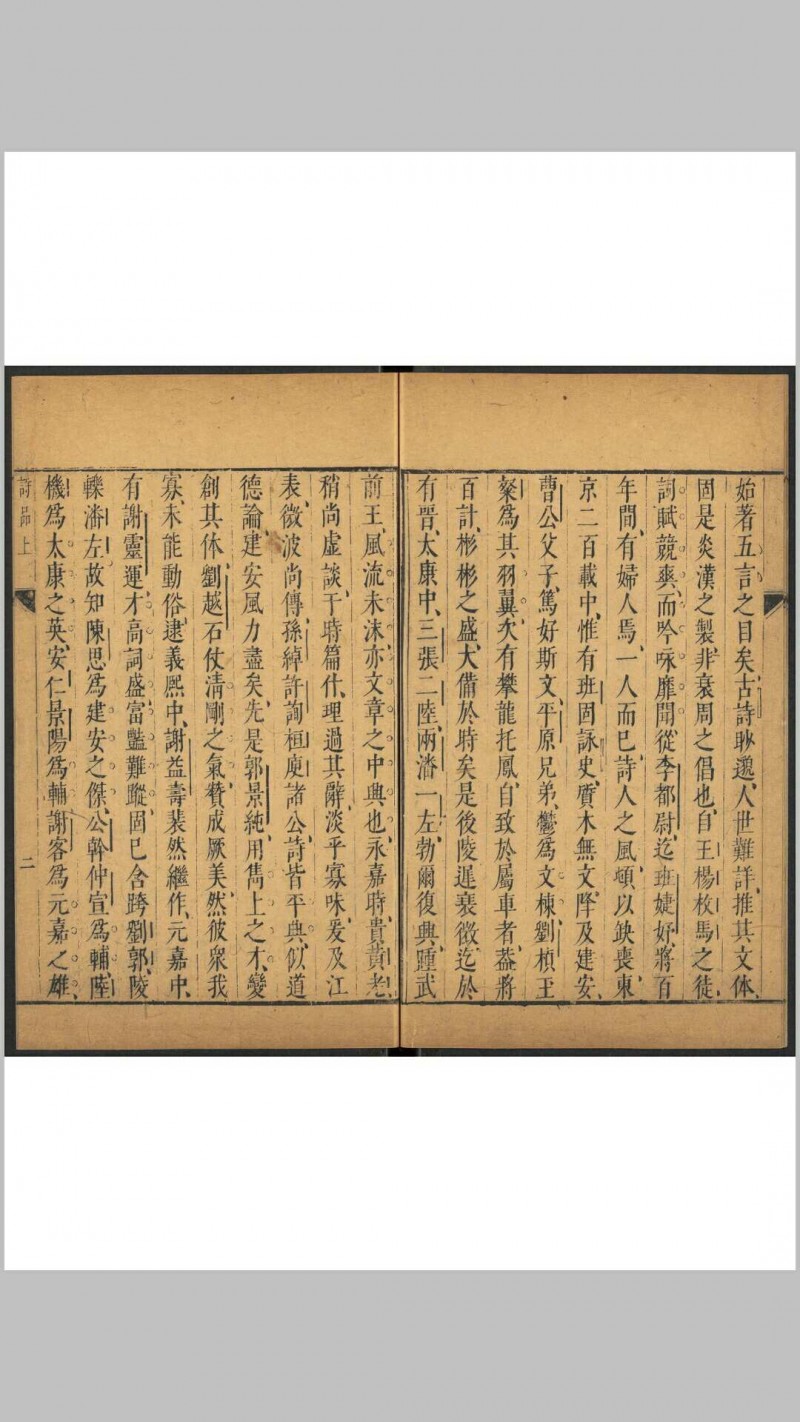 始著五言之目矣古詩眇邈人世難詳推其文体
固是炎漢之製非衰周之倡也自王楊枚馬之徒
詞賦競爽而吟咏靡聞從李都尉迄班婕妤將百
年間有婦人焉一人而已詩人之風頓以缺喪東
京二百載中惟有班固詠史質木無文降及建安
曹公父子篤好斯文平原兄弟鬱為文棟劉楨王
粲為其羽翼次有攀龍托鳳自致於屬車者葢將
百計彬彬之盛大備於時矣是後陵遲衰微迄於
有晋太康中三張二陸兩潘一左勃爾復興踵武
前王風流未沬亦文章之中興也永嘉時貴黃老
稍尚虚談于時篇什理過其辭淡乎寡味爰及江
表微波尚傳孫綽許詢桓庾諸公詩皆平典似道
德論建安風力盡矣先是郭景純用雋上之才變
創其体劉越石仗清剛之氣贊成厥美然彼衆我
寡未能動俗逮義熙中謝益壽裴然繼作元嘉中
有謝靈運才高詞盛富豔難蹤固已含跨劉郭陵
轢潘左故知陳思為建安之傑公幹仲宣為輔陸
機為太康之英安仁景陽為輔謝客為元嘉之雄
詩品上
二